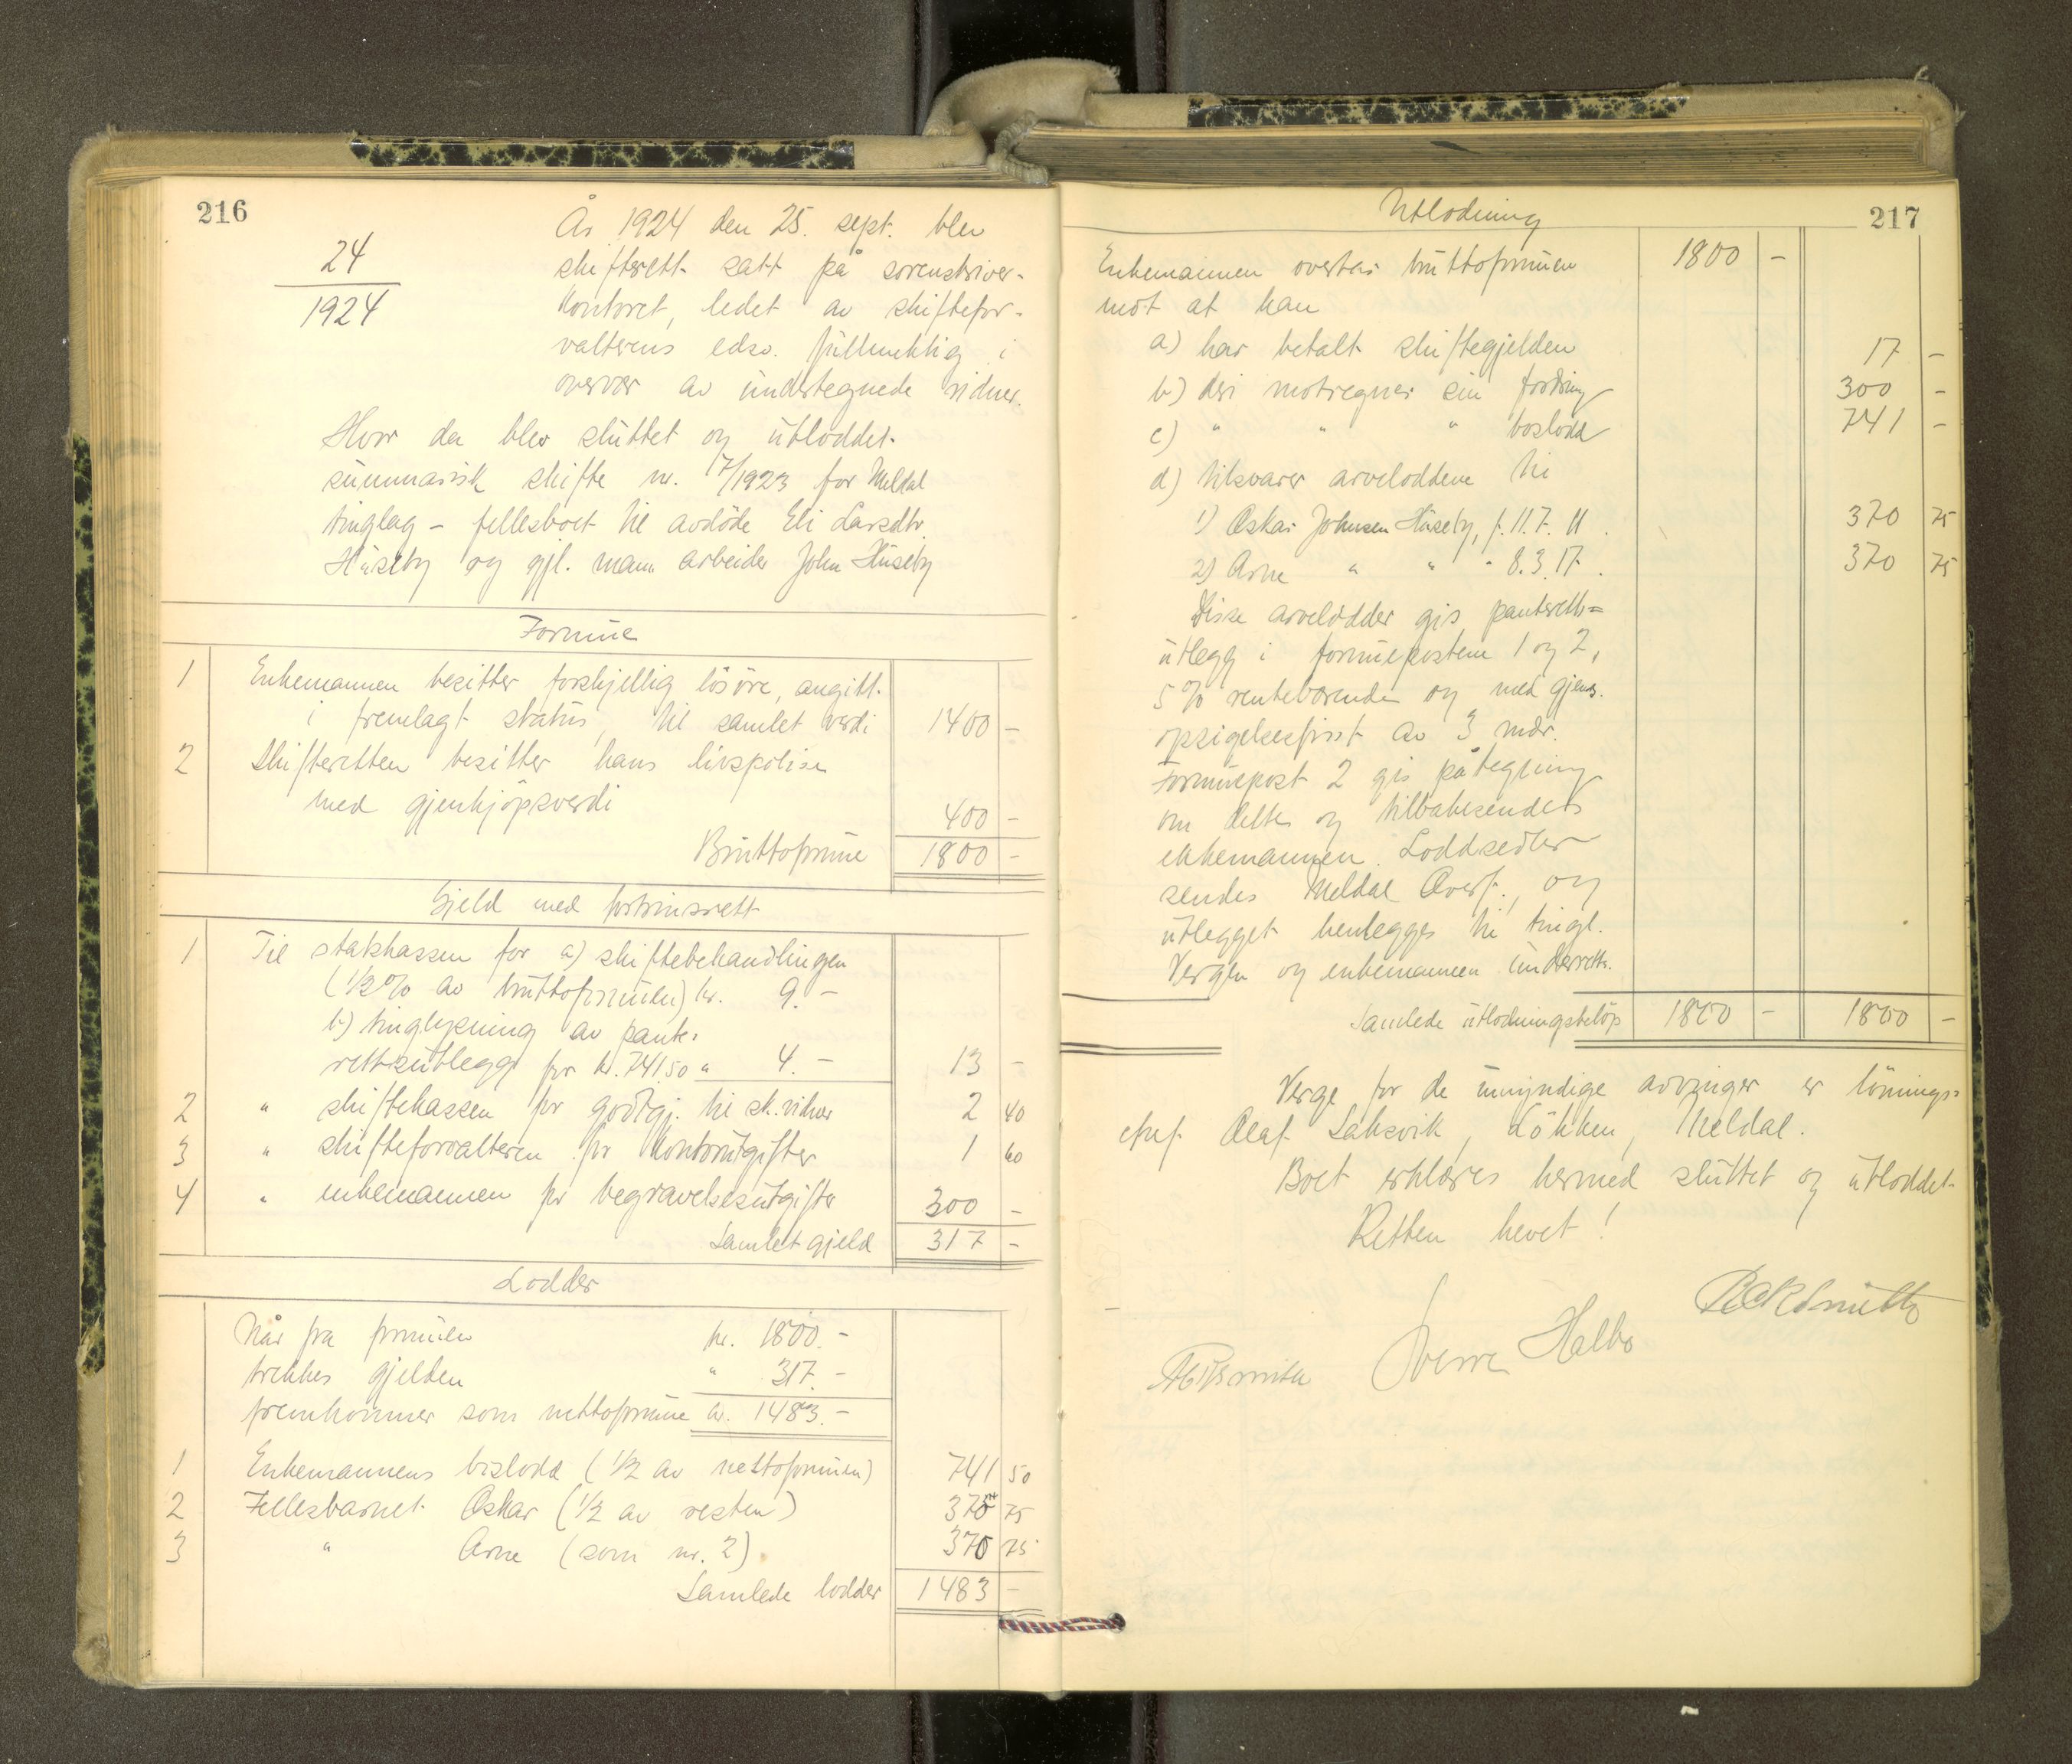 216
24
1924
År 1924 den 25. sept. blev
skifterett satt på sorenskriver-
kontoret, ledet av skiftefor-
valterens edsv. fullmektig i
overvær av undertegnede vidner.
Hvor da blev sluttet og utloddet
summarisk skifte nr. 17/1923 for Meldal
tinglag – fellesboet til avdöde Eli Larsdtr.
Huseby og gjl. mann arbeider John Huseby
Formue
1 Enkemannen besitter forskjellig lösöre, angitt
i fremlagt status, til samlet verdi 1400 –
2 Skifteretten besitter hans livspolise
med gjenkjöpsverdi 400 –
Bruttoformue 1800 –
Gjeld med fortrinsrett
1 Til statskassen for a) skiftebehandlingen
(1/2% av bruttoformuen) kr. 9. –
b) tinglysning av pante-
rettsutlegg for kr. 741.50 " 4. – 13 –
2 " skiftekassen for godtgj. til sk.vidner 2 40
3 " skifteforvalteren for kontorutgifter 1 60
4 " enkemannen for begravelsesutgifter 300 –
Samlet gjeld 317 –
Lodder
Når fra formuen kr. 1800. –
trekkes gjelden " 317. –
fremkommer som nettoformue kr. 1483. –
1 Enkemannens boslodd (1/2 av nettoformuen) 741 50
2 Fellesbarnet Oskar (1/2 av resten) 370 75
3 " Arne (som nr. 2) 370 75
Samlede lodder 1483 –
217
Utlodning
Enkemannen overtar bruttoformuen 1800 –
mot at han
a) har betalt skiftegjelden 17 –
b) deri motregner sin fordring 300 –
c) " " " boslodd 741 –
d) tilsvarer arveloddene til
1) Oskar Johnsen Huseby, f. 11.7.11. 370 75
2) Arne " " " 8.3.17. 370 75
Disse arvelodder gis panteretts=
utlegg i formuepostene 1 og 2,
5% rentebærende og med gjens.
opsigelsesfrist av 3 mdr.
Formuepost 2 gis påtegning
om dette og tilbakesendes
enkemannen. Loddsedler
sendes Meldal Overf., og
utlegget henlegges til tingl.
Vergen og enkemannen underrettes.
Samlede utlodningsbelöp 1800 – 1800 –
Verge for de umyndige arvinger er lönings=
chef Olaf Saksvik, Lökken, Meldal.
Boet erklæres hermed sluttet og utloddet
Retten hevet!
Sverre Halbo